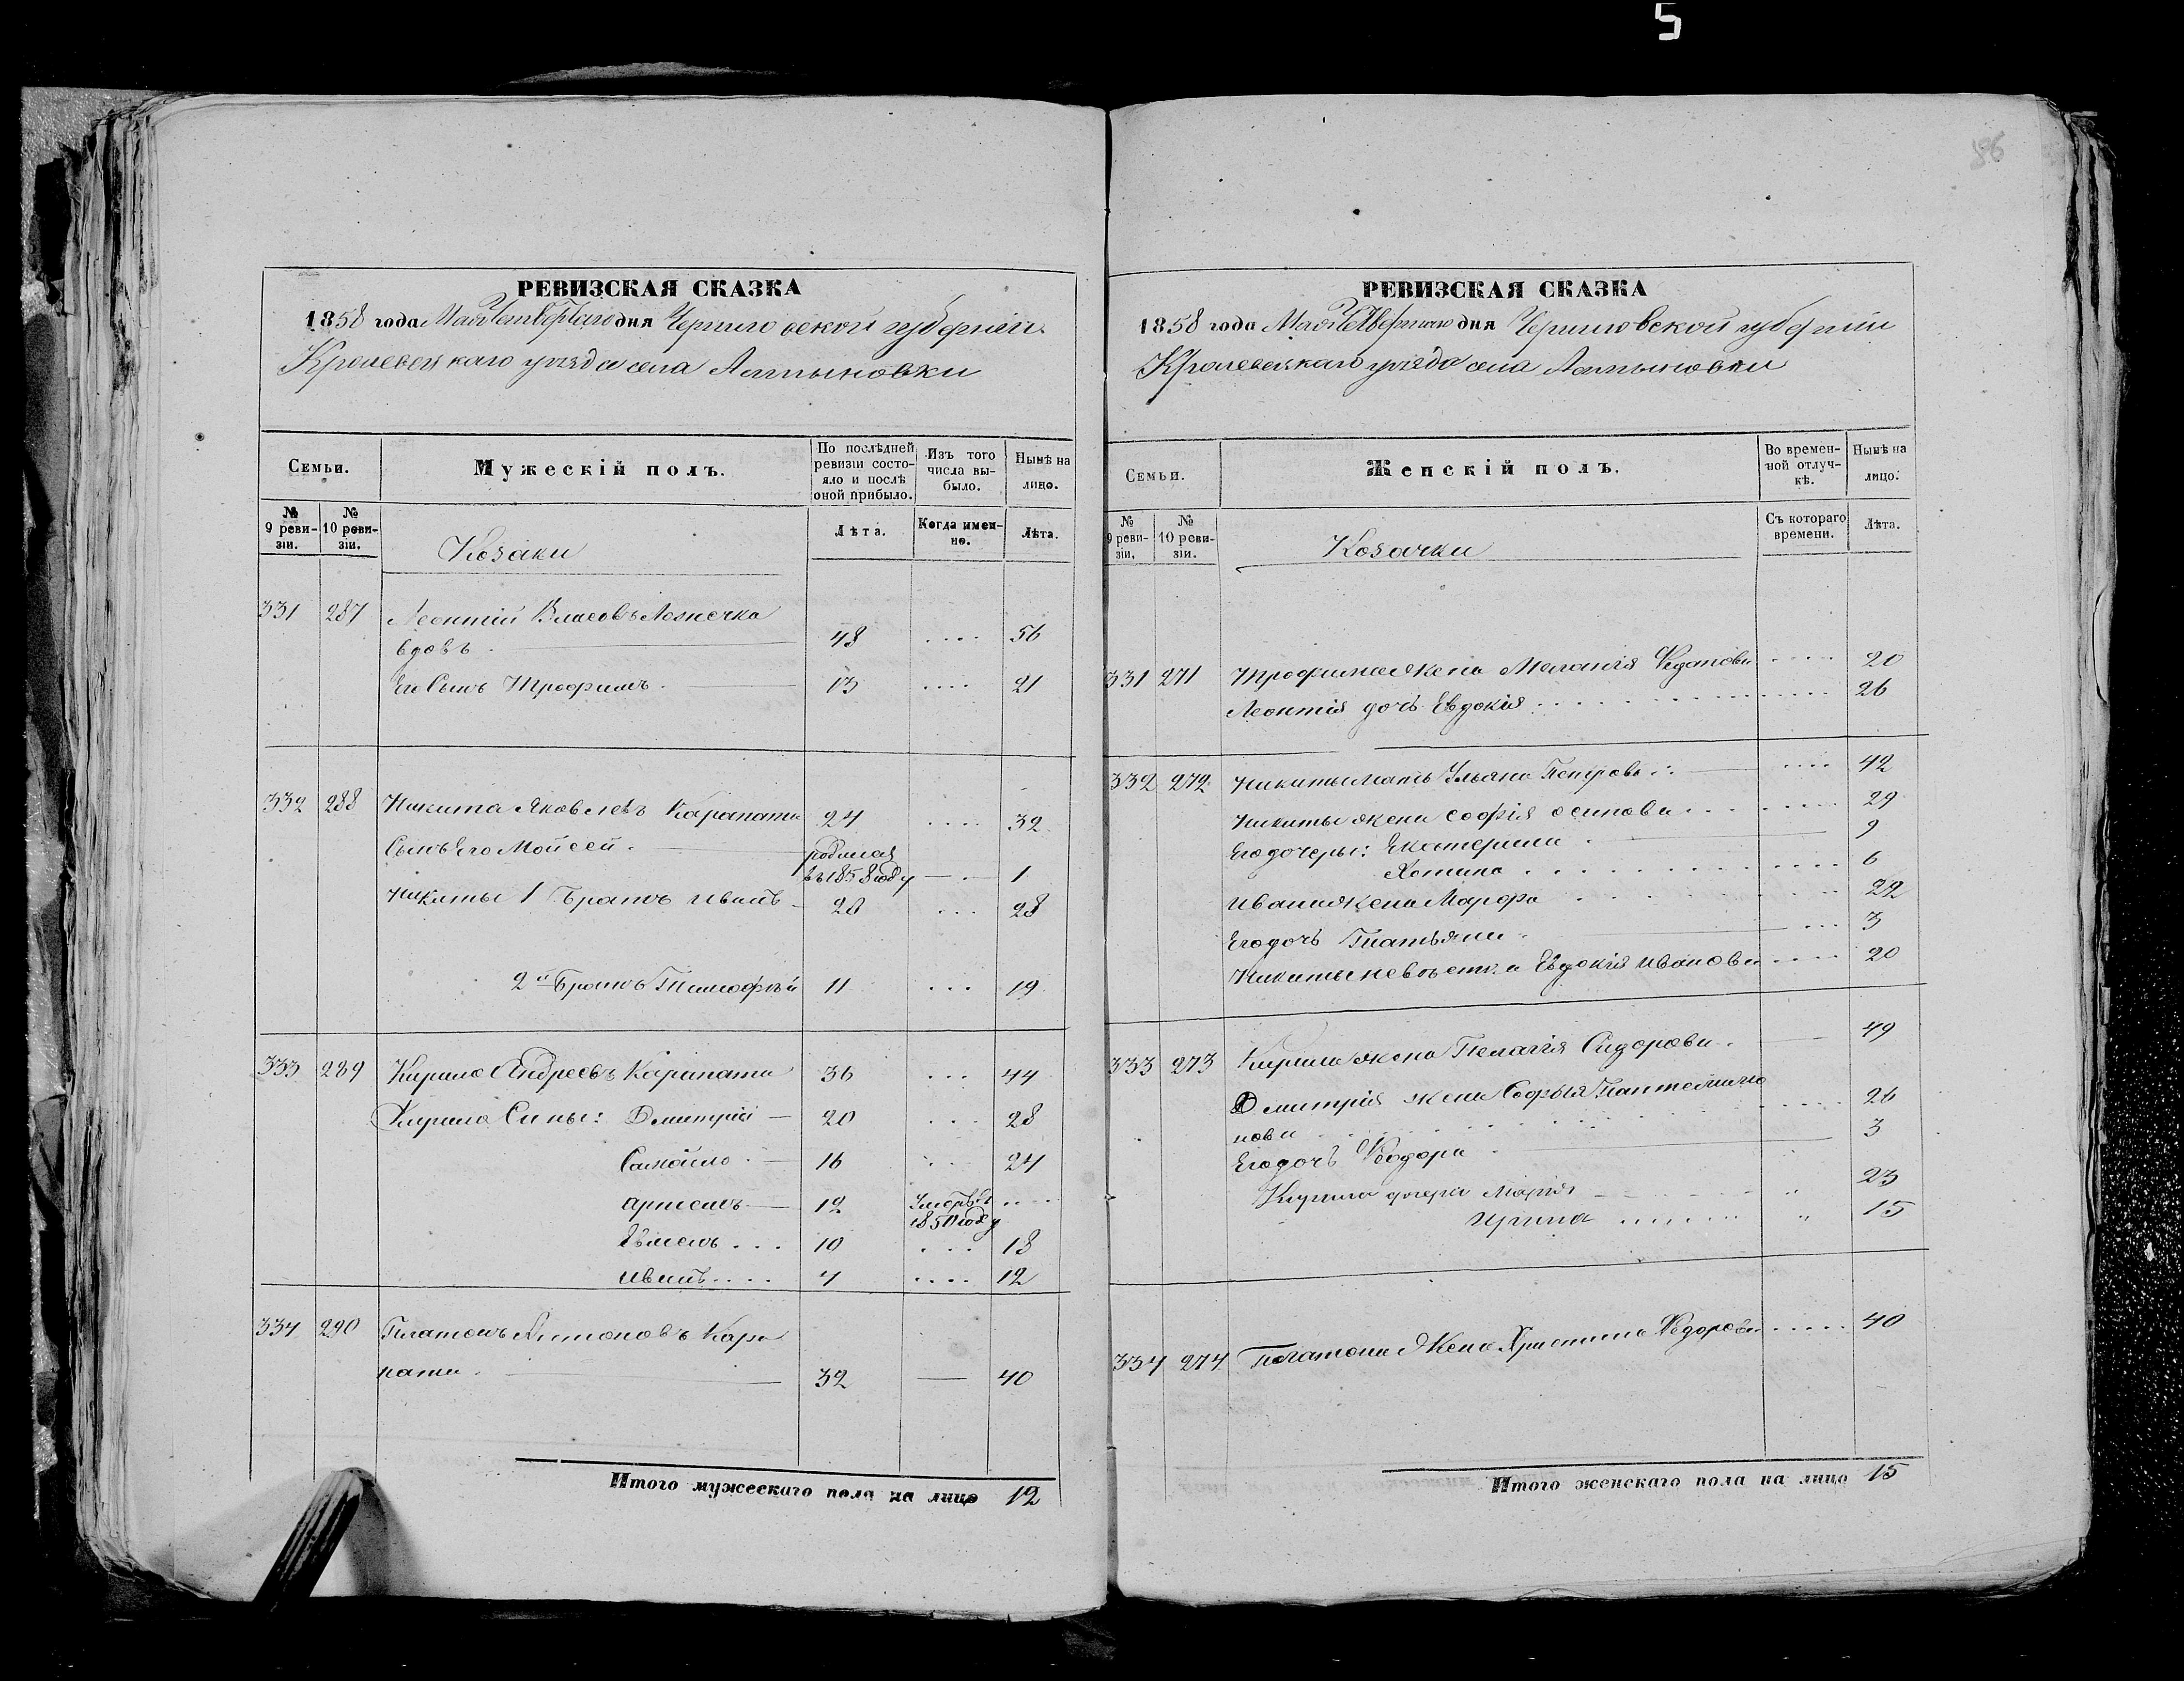 5
86
РЕВИЗСКАЯ СКАЗКА
1858 года Мая Четвертаго дня Черниговской губерніи
Кролевецкаго уѣзда села Алтыновки
Семьи.
Мужескій полъ.
По послѣдней ревизіи состояло и послѣ оной прибыло.
Изъ того числа выбыло.
Нынѣ на лицо.
№ 9 ревизіи.
№ 10 ревизіи.
Козаки
Лѣта.
Когда именно.
Лѣта.
331 287 Леонтій Власовъ
вдовъ 48 .... 56
Его Сынъ Трофимъ 13 .... 21
332 288 Никита Яковлевъ Карапата 24 .... 32
Сынъ Его Мойсей родился въ 1858 году 1
Никиты 1 Братъ Иванъ 20 ... 28
2й Братъ Тимофѣй 11 ... 19
333 289 Кирило Андреевъ Карапата 36 ... 44
Кирила Сины: Дмитрій 20 ... 28
Самойло 16 ... 24
Артемъ 12 Умеръ въ 1851 году ....
10 ... 18
Иванъ .... 4 .... 12
334 290 Платонъ Антоновъ Кара
пата 32 40
Итого мужескаго пола на лицо 12
РЕВИЗСКАЯ СКАЗКА
1858 года Мая Четвертаго дня Черниговской губерніи
Кролевецкаго уѣзда села Алтыновки
Семьи.
Женскій полъ.
Во временной отлучкѣ.
Нынѣ на лицо.
№ 9 ревизіи.
№ 10 ревизіи.
Козачки
Съ котораго времени.
Лѣта.
331 271 Трофима Жена Меланія .... 20
Леонтія дочь Евдокія .... 26
332 272 Никиты Мать Ульяна Петрова .... 42
Никиты жена Софія Осипова .... 29
Его дочеры: Екатерина 9
Хотина .... 6
Ивана жена Марфа .... 22
Его дочь Татьяна ... 3
Никиты невѣстка Евдокія Иванова .... 20
333 273 Кирила жена Пелагія Сидорова 49
Дмитрія жена Софья Пантелимо
нова .... 26
Его дочь Феодора 3
Кирила дочери Марія " 23
Ирина ....... " 15
334 274 Платона Жена Христина Федорова ..... 40
Итого женскаго пола на лицо 15